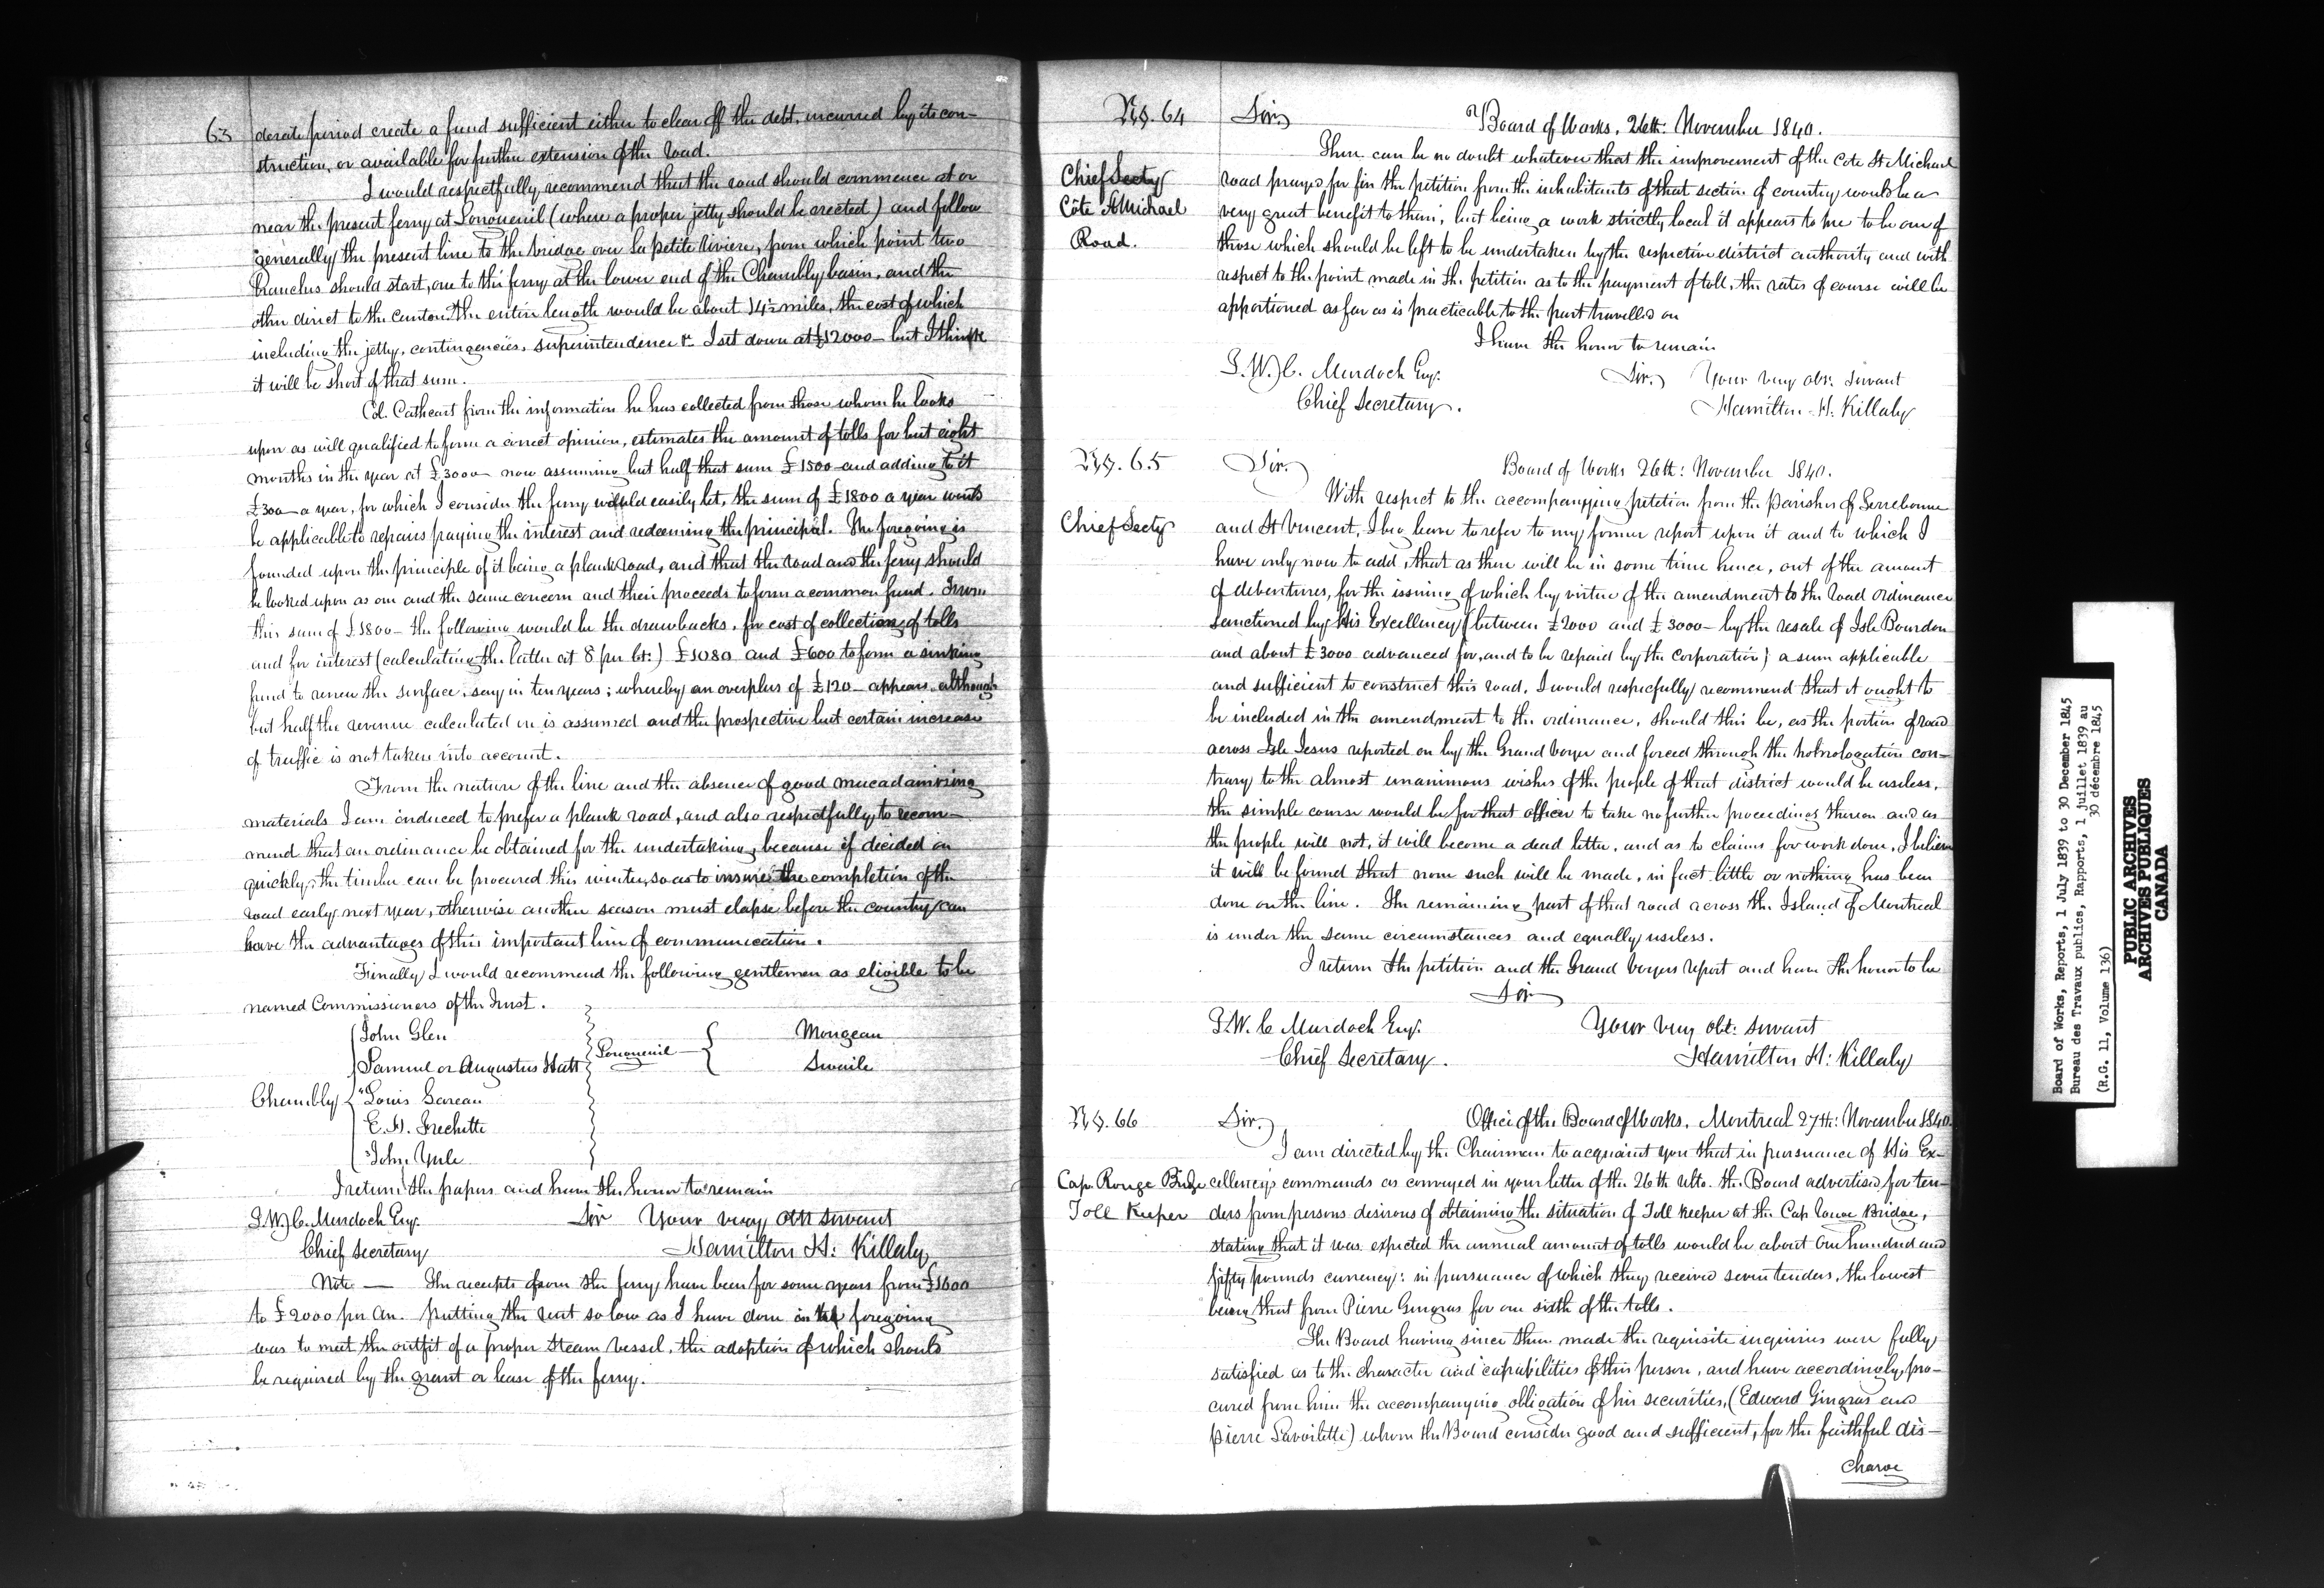 63
derate period create a fund sufficient either to clear off the debt, incurred by its con-
struction, or available for further extension of the road.
I would respectfully recommend that the road should commence at or
near the present ferry at Longueuil (where a proper jetty should be erected) and follow
generally the present line to the bridge over la petite Riviere, from which point two
Branches should start, one to the ferry at the lower end of the Chambly basin, and the
other direct to the canton. The entire length would be about 14½ miles, the cost of which
including the jetty, contingencies, superintendence &c I set down at £12000 - but I think
it will be short of that sum.
Col. Cathcart from the information he has collected from those whom he looks
upon as well qualified to form a correct opinion, estimates the amount of tolls for but eight
months in the year at £3000 - now assuming but half that sum £1500 - and adding to it
£300 - a year, for which I consider the ferry would easily let, the sum of £1800 a year would
be applicable to repairs paying the interest and redeeming the principal. The foregoing is
founded upon the principle of it being a plank road, and that the road and the ferry should
be looked upon as one and the same concern and their proceeds to form a common fund. From
this sum of £1800 - the following would be the drawbacks, for cost of collecting of tolls
and for interest (calculating the latter at 8 per Ct:) £1080 and £600 to form a sinking
fund to renew the surface, say in ten years; whereby an overplus of £120 - appears although
but half the revenue calculated on is assumed and the prospective but certain increase
of traffic is not taken into account.
From the nature of the line and the absence of good macadamising
materials I am induced to prefer a plank road, and also respectfully to recom-
mend that an ordinance be obtained for the undertaking, because if decided on
quickly, the timber can be procured this winter, so as to insure the completion of the
road early next year, otherwise another season must elapse before the country can
have the advantages of this important line of communication.
Finally I would recommend the following gentlemen as eligible to be
named Commissioners of the Trust.
John Glen
Samuel or Augustus Hatt
Chambly Louis Gareau
E. H. Frechette
John Yule
Longueuil
Mongeau
Swaile
I return the papers and have the honor to remain
T. W. C. Murdoch Esqr. Sir Your very obt servant
Chief Secretary Hamilton H: Killaly
Note — The receipts from the ferry have been for some years from £1600
to £2000 per an. putting the rent so low as I have done in the foregoing
was to meet the outfit of a proper steam vessel, the adoption of which should
be required by the grant or lease of the ferry.
No. 64
Chief Secty
Côte St Michael
Road.
Sir, Board of Works, 26th: November 1840.
There can be no doubt whatever that the improvement of the Cote St Michael
road prayed for in the petition from the inhabitants of that section of country would be a
very great benefit to them; but being a work strictly local it appears to me to be one of
those which should be left to be undertaken by the respective district authority and with
respect to the point made in the petition as to the payment of toll, the rates of course will be
apportioned as far as is practicable to the part travelled on
I have the honor to remain
T. W. C. Murdoch Esqr. Sir, Your very obt: servant
Chief Secretary. Hamilton H: Killaly
No. 65
Chief Secty
Sir, Board of Works 26th: November 1840.
With respect to the accompanying petition from the Parishes of Terrebonne
and St Vincent, I beg leave to refer to my former report upon it and to which I
have only now to add, that as there will be in some time hence, out of the amount
of debentures, for the issuing of which by virtue of the amendment to the Road ordinance
sanctioned by His Excellency (between £2000 and £3000 - by the resale of Isle Bourdon
and about £3000 advanced for, and to be repaid by the Corporation) a sum applicable
and sufficient to construct this road, I would respecfully recommend that it ought to
be included in the amendment to the ordinance, should this be, as the portion of road
across Isle Jesus reported on by the Grand Voyer and forced through the homologation con-
trary to the almost unanimous wishes of the people of that district would be useless,
the simple course would be for that officer to take no further proceedings thereon and as
the people will not, it will become a dead letter, and as to claims for work done, I believe
it will be found that none such will be made, in fact little or nothing has been
done on the line. The remaining part of that road across the Island of Montreal
is under the same circumstances and equally useless.
I return the petition and the Grand Voyers report and have the honor to be
Sir
T. W. C Murdoch Esqr. Your very obt: servant
Chief Secretary. Hamilton H: Killaly
No. 66
Cap Rouge Bridge
Toll Keeper
Sir, Office of the Board of Works, Montreal 27th: November 1840.
I am directed by the Chairman to acquaint you that in pursuance of His Ex-
cellency's commands as conveyed in your letter of the 26th ulto. the Board advertised for ten-
ders from persons desirous of obtaining the situation of Toll keeper at the Cap Rouge Bridge,
stating that it was expected the annual amount of tolls would be about One hundred and
fifty pounds currency: in pursuance of which they received seven tenders, the lowest
being that from Pierre Gingras for one sixth of the tolls.
The Board having since then made the requisite inquiries were fully
satisfied as to the character and capabilities of this person, and have accordingly, pro-
cured from him the accompanying obligation of his securities, (Edward Gingras and
Pierre Lavoilette) whom the Board consider good and sufficient, for the faithful dis-
charge
Board of Works, Reports, 1 July 1839 to 30 December 1845
Bureau des Travaux publics, Rapports, 1 juillet 1839 au
30 décembre 1845
(R.G. 11, Volume 136)
PUBLIC ARCHIVES
ARCHIVES PUBLIQUES
CANADA